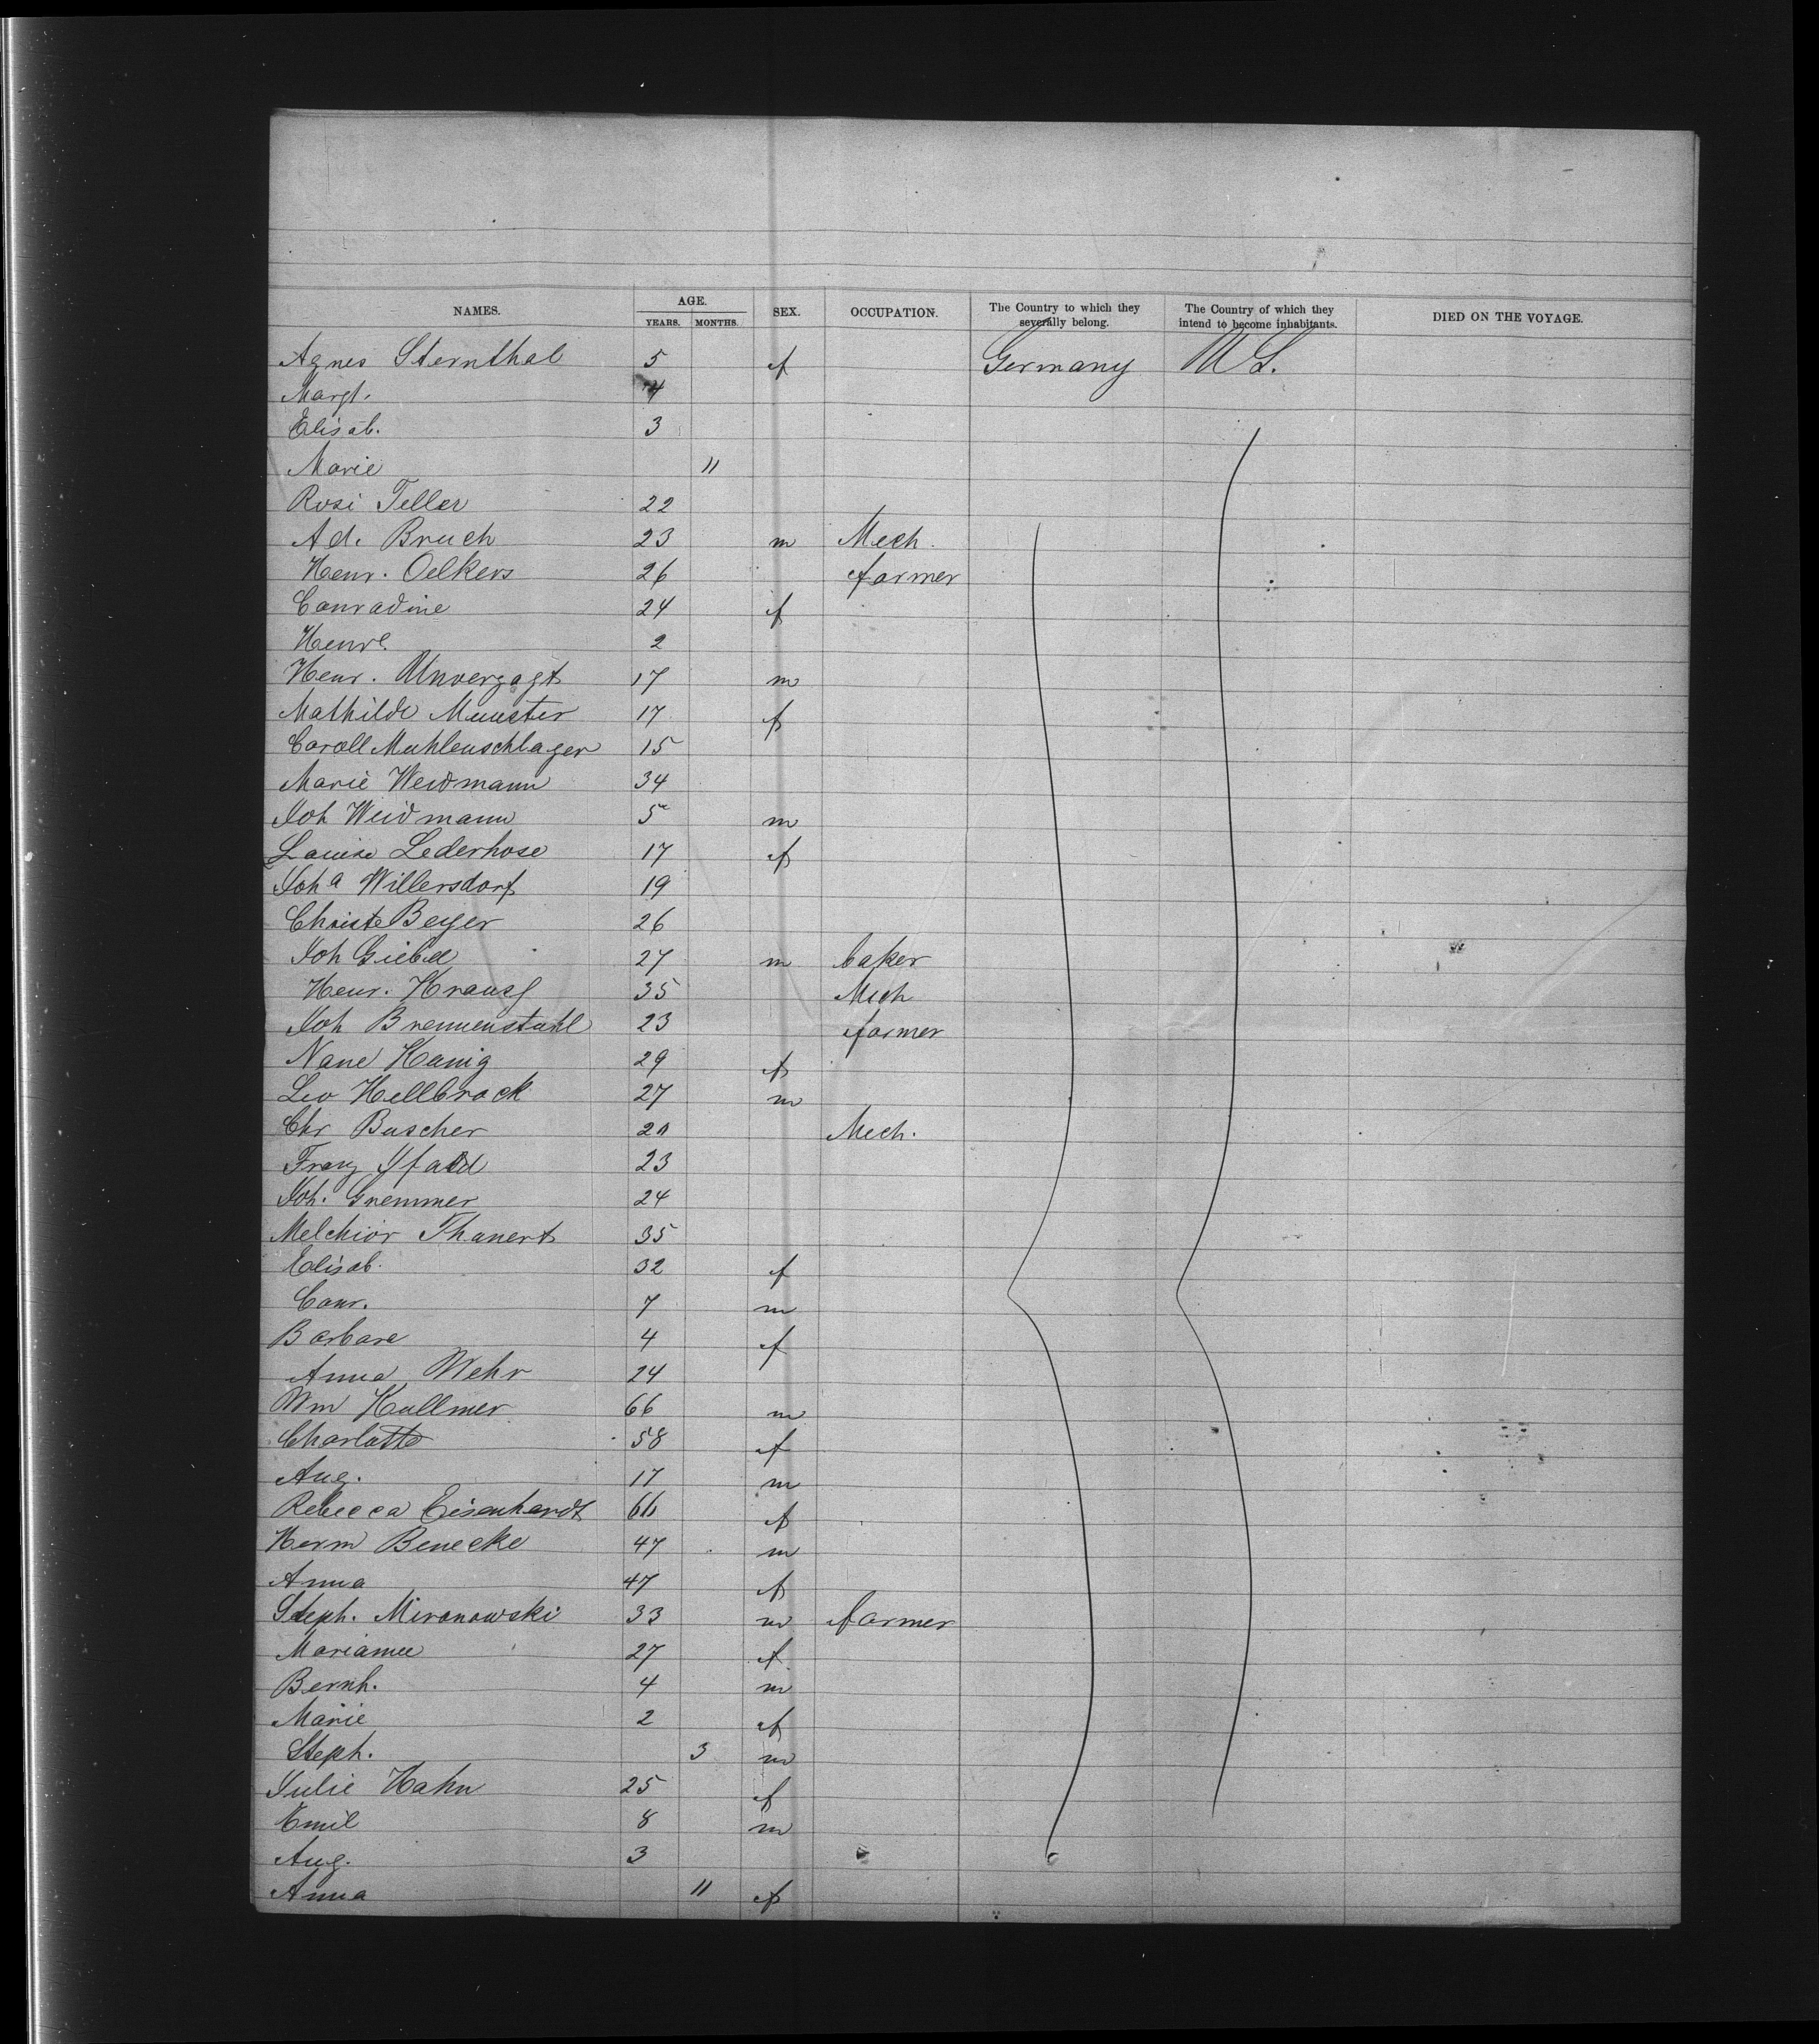 NAMES. AGE. SEX. OCCUPATION. The Country to which they severally belong. The Country of which they intend to become inhabitants. DIED ON THE VOYAGE.
YEARS. MONTHS.
Agnes Sternthal 5 f Germany U S.
Margt. 4
Elisab. 3
Marie 11
Rosi Teller 22
Ad. Bruch 23 m Mech.
Henr. Oelkers 26 farmer
Conradine 24 f
Henre. 2
Henr. Unverzagt 17 m
Mathilde Munster 17 f
Caroll Muhlenschlager 15
Marie Weidmann 34
Joh Weidmann 5 m
Louise Lederhose 17 f
Joha Willersdorf 19
Christe Beyer 26
Joh Giebel 27 m baker
Henr. Krausf 35 Mech
Joh Brennenstuhl 23 farmer
Nane Hanig 29 f
Leo Hellbrock 27 m
Chr Buscher 20 Mech.
Franz 23
Joh. Gremmer 24
Melchior Thanert 35
Elisab. 32 f
Conr. 7 m
Barbare 4 f
Anna Wehr 24
Wm Kullmer 66 m
Charlotte 58 f
Aug. 17 m
Rebecca Eisenhardt 66 f
Herm Benecke 47 m
Anna 47 f
Steph. Mironowski 33 m farmer
Marianne 27 f
Bernh. 4 m
Marie 2 f
Steph. 3 m
Julie Hahn 25 f
Emil 8 m
Aug. 3
Anna 11 f